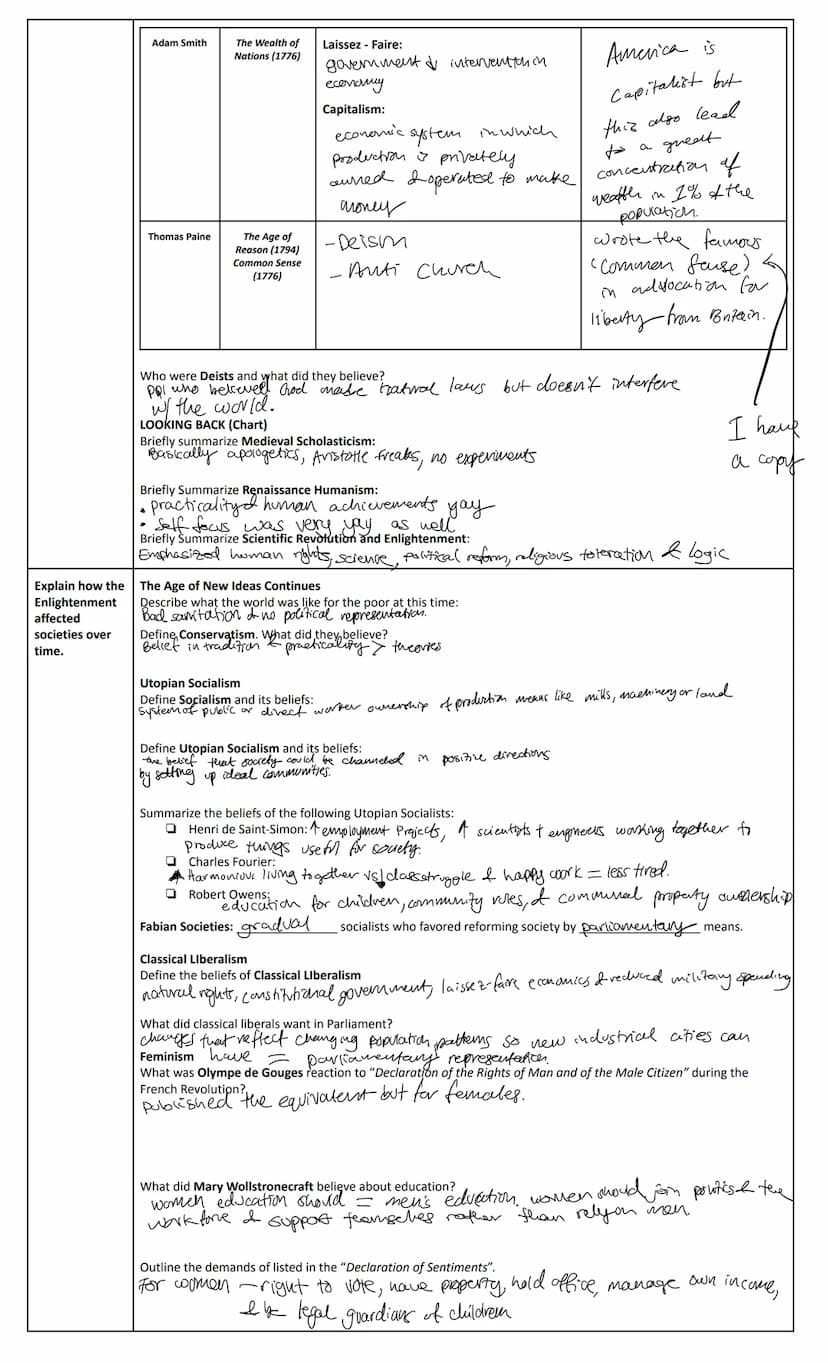 Adam Smith
The Wealth of
Nations (1776)
Laissez - Faire:
government ↓ intervention in
economy
Capitalism:
economic system in which
production is privately
owned & operated to make
money
America is
Capitalist but
this also lead
to a great
concentration of
wealth in 1% of the
population.
Thomas Paine
The Age of
Reason (1794)
Common Sense
(1776)
- Deism
- Anti Church
wrote the famous
(Common Sense)
in advocation for
liberty from Britain.
I have
a copy
Who were Deists and what did they believe?
ppl who believed God made natural laws but doesn't interfere
w/ the world.
LOOKING BACK (Chart)
Briefly summarize Medieval Scholasticism:
Basically apologetics, Aristotle freaks, no experiments
Briefly Summarize Renaissance Humanism:
• practicality & human achievements yay
• self focus was very yay as well
Briefly Summarize Scientific Revolution and Enlightenment:
Emphasized human rights, science, political reform, religious toleration & logic
Explain how the
Enlightenment
affected
societies over
time.
The Age of New Ideas Continues
Describe what the world was like for the poor at this time:
Bad sanitation & no political representation.
Define Conservatism. What did they believe?
Belief in tradition & practicality > theories
Utopian Socialism
Define Socialism and its beliefs:
system of public or direct worker ownership of production means like mills, machinery or land
Define Utopian Socialism and its beliefs:
the belief that society could be channeled in positive directions
by setting up ideal communities.
Summarize the beliefs of the following Utopian Socialists:
❏ Henri de Saint-Simon: ↑ employment projects, ↑ scientists + engineers working together to
produce things useful for society.
❏ Charles Fourier:
Harmonious living together vs class struggle & happy work = less tired.
❏ Robert Owens:
education for children, community rules, & communal property ownership
Fabian Societies: gradual socialists who favored reforming society by parliamentary means.
Classical LIberalism
Define the beliefs of Classical LIberalism
natural rights, constitutional government, laissez-faire economics & reduced military spending
What did classical liberals want in Parliament?
changes that reflect changing population patterns so new industrial cities can
have = parliamentary representation.
Feminism
What was Olympe de Gouges reaction to “Declaration of the Rights of Man and of the Male Citizen” during the
French Revolution?
published the equivalent but for females.
What did Mary Wollstronecraft believe about education?
women education should = men's education. women should join politics & the
workforce & support themselves rather than rely on men.
Outline the demands of listed in the “Declaration of Sentiments”.
For women - right to vote, have property, hold office, manage own income,
& be legal guardians of children